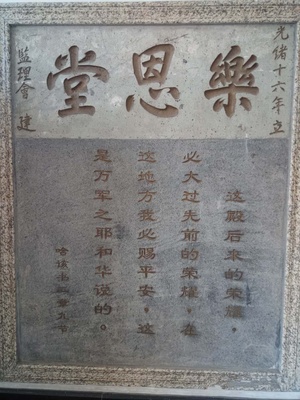 光緒十六年立
樂恩堂
監理會 建
这殿后来的荣耀，
必大过先前的荣耀，在
这地方我必赐平安，这
是万军之耶和华说的。
哈该书二章九节